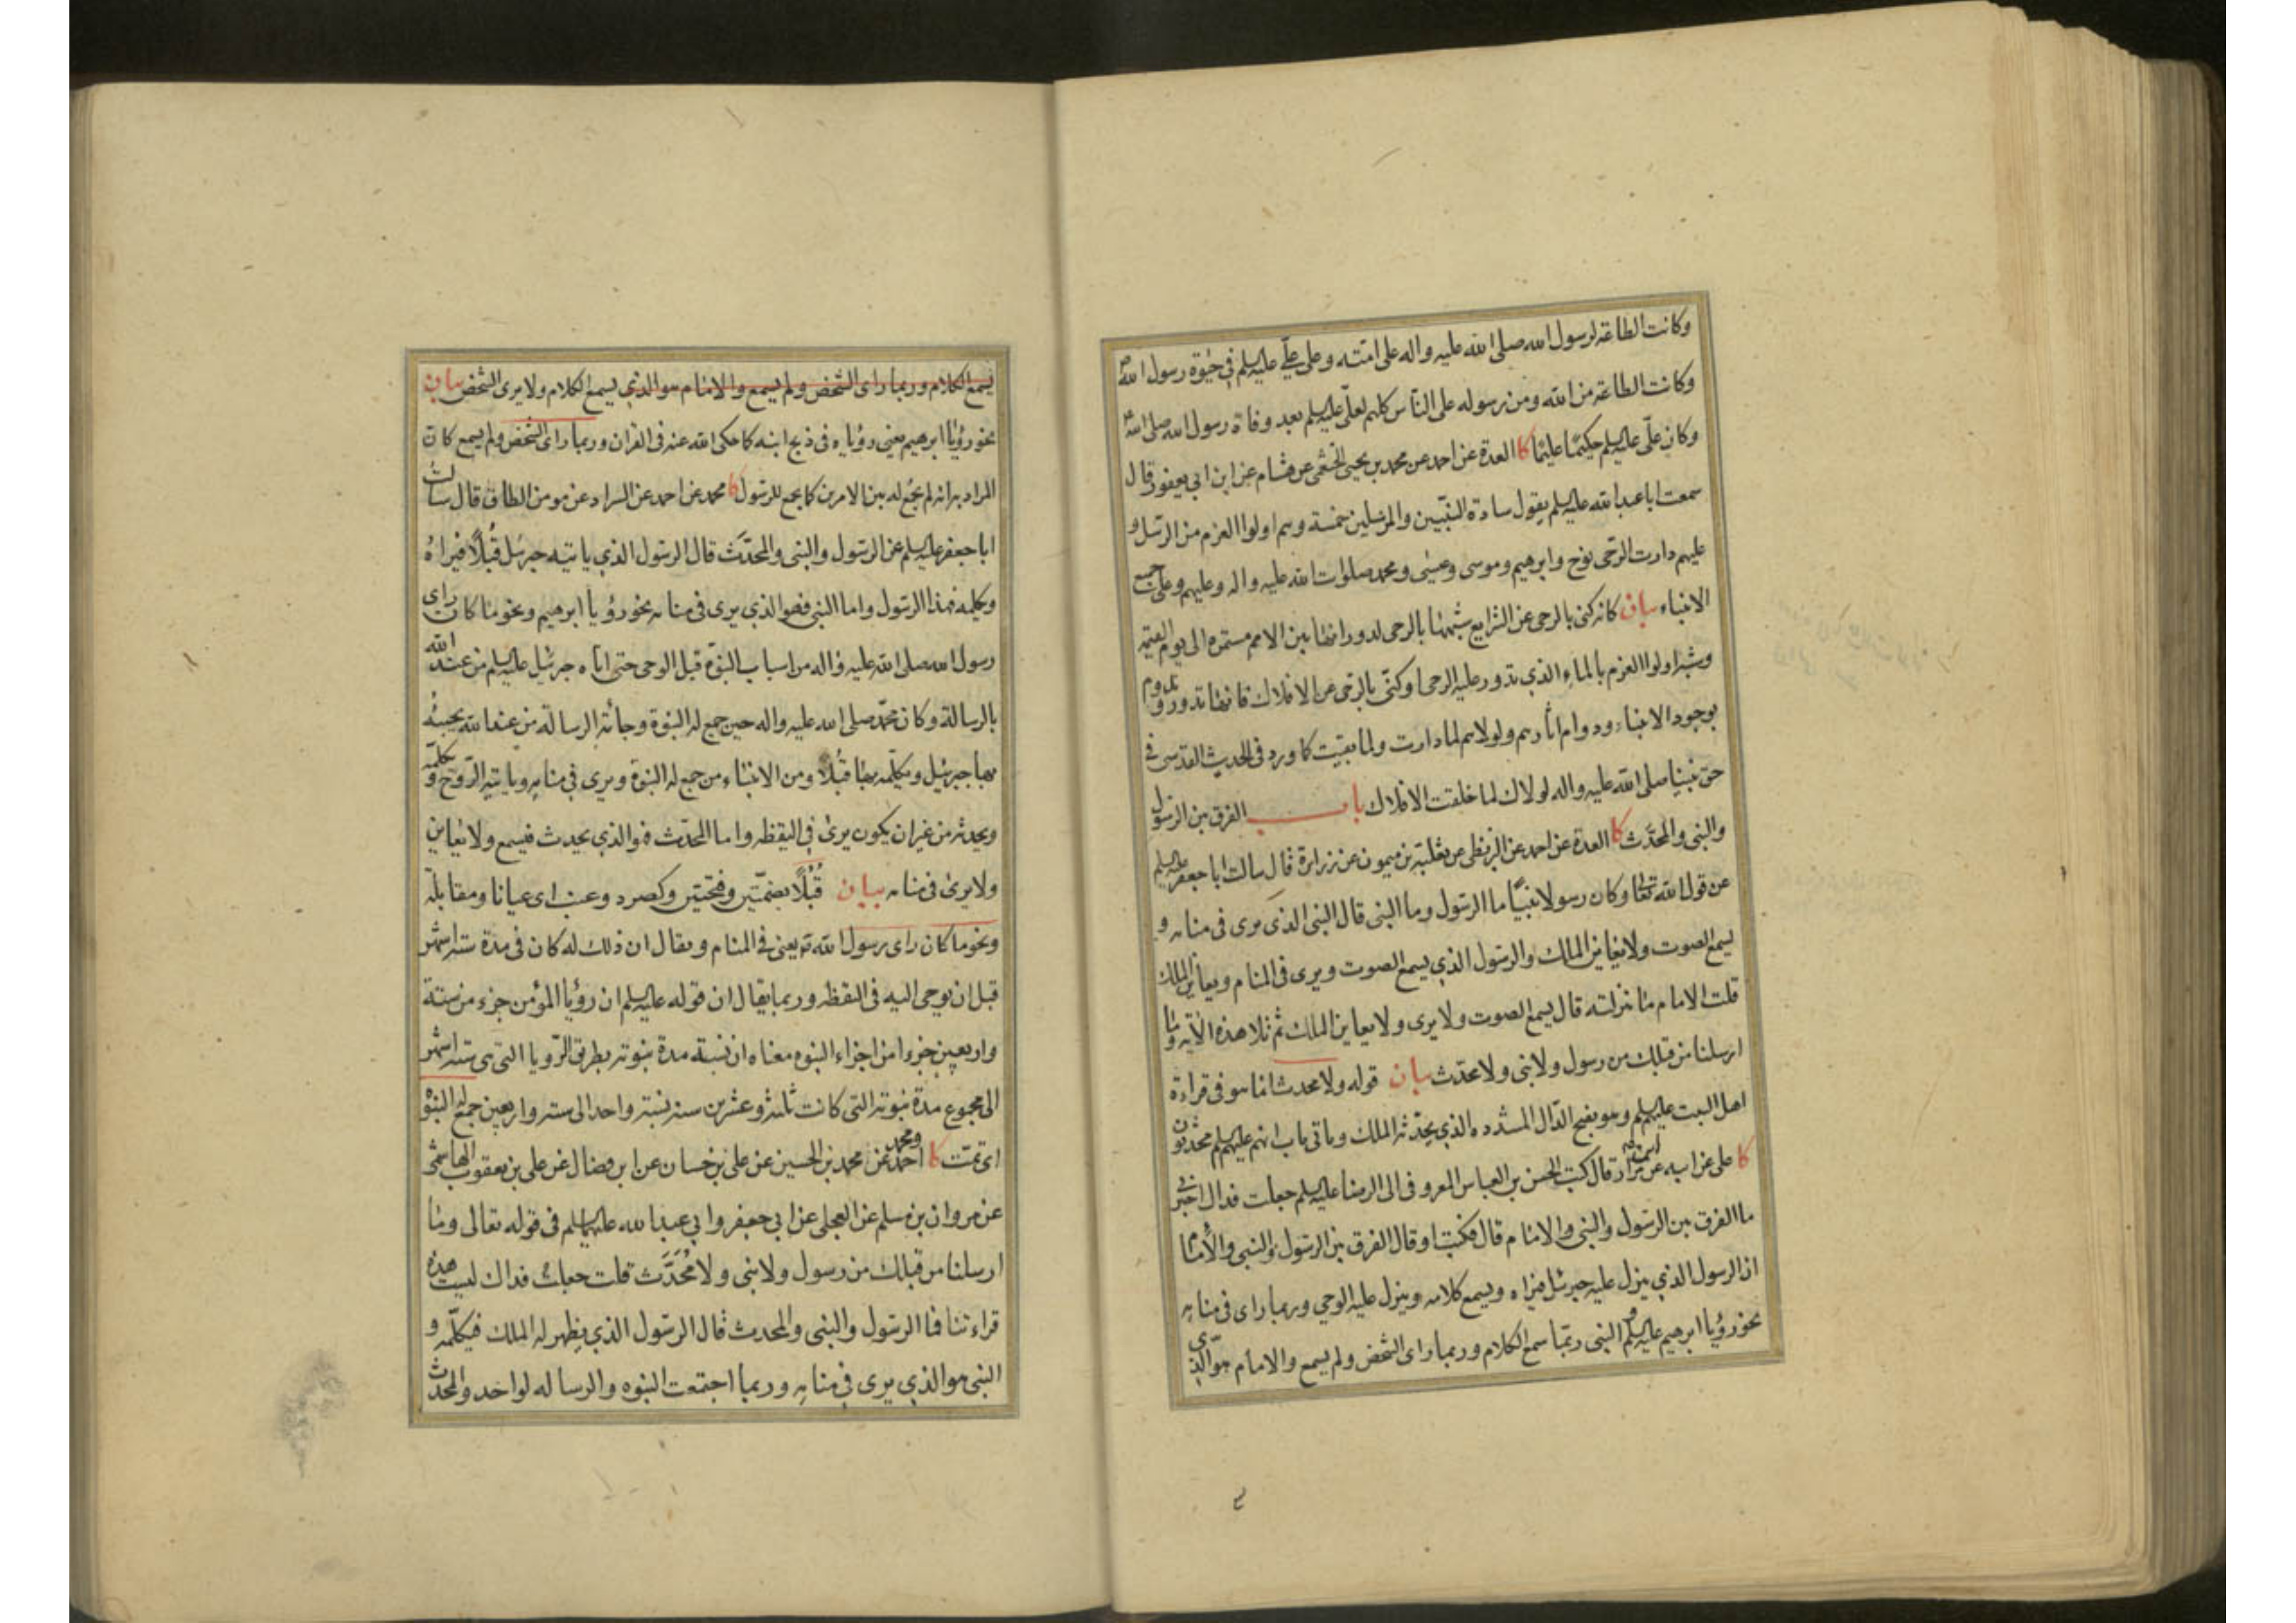 وكانت الطاعة لرسول الله صلى الله عليه واله على امته وعلى علي عليه السلم في حيوة رسول الله ص
وكانت الطاعة من الله ومن رسوله على الناس كلهم لعلي عليه السلم بعد وفاة رسول الله صلى الله
وكان علي عليه السلم حكيما عليما كا العدة عن احمد عن محمد بن يحيى الخثعمي عن هشام عن ابن ابي يعفور قال
سمعت ابا عبد الله عليه السلم يقول سادة النبيين والمرسلين خمسة وهم اولوا العزم من الرسل و
عليهم دارت الرحى نوح وابرهيم وموسى وعيسى ومحمد صلوات الله عليه واله وعليهم وعلى جميع
الانبياء بيان كانه كنى بالرحى عن الشرايع شبهها بالرحى لدورانها بين الامم مستمرة الى يوم القيمة
وشبه اولوا العزم بالماء الذي تدور عليه الرحى او كنى بالرحى عن الافلاك فانها تدور وتدوم
بوجود الانبياء ودوام اثارهم ولولاهم لما دارت ولما بقيت كما ورد في الحديث القدسي في
حق نبينا صلى الله عليه واله لولاك لما خلقت الافلاك باب الفرق بين الرسول
والنبي والمحدث كا العدة عن احمد عن البزنطي عن ثعلبة بن ميمون عن زرارة قال سالت ابا جعفر عليه السلم
عن قول الله تعالى وكان رسولا نبيا ما الرسول وما النبي قال النبي الذي يرى في منامه و
يسمع الصوت ولا يعاين الملك والرسول الذي يسمع الصوت ويرى في المنام ويعاين الملك
قلت الامام ما منزلته قال يسمع الصوت ولا يرى ولا يعاين الملك ثم تلا هذه الاية وما
ارسلنا من قبلك من رسول ولا نبي ولا محدث بيان قوله ولا محدث انما هو في قراءة
اهل البيت عليهم السلم وهو بفتح الدال المشددة الذي يحدثه الملك وياتي باب انهم عليهم السلم محدثون
كا علي عن ابيه عن اسمعيل بن مرار قال كتب الحسن بن العباس المعروفي الى الرضا عليه السلم جعلت فداك اخبرني
ما الفرق بين الرسول والنبي والامام قال فكتب او قال الفرق بين الرسول والنبي والامام
ان الرسول الذي ينزل عليه جبرئيل فيراه ويسمع كلامه وينزل عليه الوحي وربما راى في منامه
نحو رؤيا ابرهيم عليه السلم والنبي ربما سمع الكلام وربما راى الشخص ولم يسمع والامام هو الذي
يسمع الكلام وربما راى الشخص ولم يسمع والامام هو الذي يسمع الكلام ولا يرى الشخص بيان
نحو رؤيا ابرهيم يعني رؤياه في ذبح ابنه كما حكى الله عنه في القران وربما راى الشخص ولم يسمع كان
المراد به انه لم يجمع له بين الامرين كما يجمع للرسول كا محمد عن احمد عن السراد عن مومن الطاق قال سالت
ابا جعفر عليه السلم عن الرسول والنبي والمحدث قال الرسول الذي ياتيه جبرئيل قبلا فيراه
ويكلمه فهذا الرسول واما النبي فهو الذي يرى في منامه نحو رؤيا ابرهيم ونحو ما كان راى
رسول الله صلى الله عليه واله من اسباب النبوة قبل الوحي حتى اتاه جبرئيل عليه السلم من عند الله
بالرسالة وكان محمد صلى الله عليه واله حين جمع له النبوة وجاءته الرسالة من عند الله يجيئه
بها جبرئيل ويكلمه بها قبلا ومن الانبياء من جمع له النبوة ويرى في منامه وياتيه الروح و يكلمه
ويحدثه من غير ان يكون يرى في اليقظه واما المحدث فهو الذي يحدث فيسمع ولا يعاين
ولا يرى في منامه بيان قبلا بضمتين وفتحتين وكصرد وعنب اى عيانا ومقابلة
ونحو ما كان راى رسول الله ص يعني في المنام ويقال ان ذلك له كان في مدة ستة اشهر
قبل ان يوحى اليه في اليقظه وربما يقال ان قوله عليه السلم ان رؤيا المؤمن جزء من ستة
واربعين جزءا من اجزاء النبوه معناه ان نسبة مدة نبوته بطريق الرويا التي هي ستة اشهر
الى مجموع مدة نبوته التي كانت ثلثة وعشرين سنة نسبة واحد الى ستة واربعين جمع له النبوة
اى تمت كا احمد ومحمد عن محمد بن الحسين عن علي بن حسان عن ابن فضال عن علي بن يعقوب الهاشمي
عن مروان بن مسلم عن العجلي عن ابي جعفر وابي عبد الله عليهما السلم في قوله تعالى وما
ارسلنا من قبلك من رسول ولا نبي ولا محدث قلت جعلت فداك ليست هذه
قراءتنا فما الرسول والنبي والمحدث قال الرسول الذي يظهر له الملك فيكلمه و
النبي هو الذي يرى في منامه وربما اجتمعت النبوه والرساله لواحد والمحدث